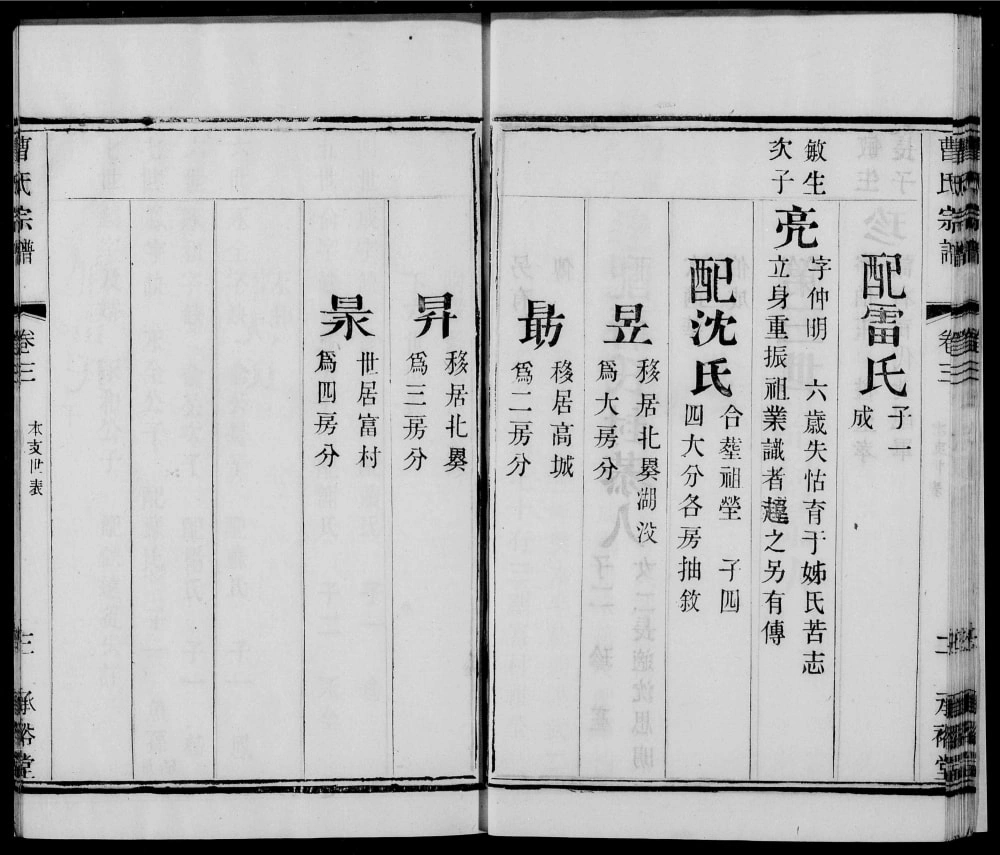 曹氏宗譜
卷三
二
承裕堂
配雷氏
子一
成
敏生
次子
亮
字仲明 六歲失怙育于姊氏苦志
立身重振祖業識者趨之另有傳
配沈氏
合塟祖塋 子四
四大分各房抽敘
昱
移居北㙟湖没
爲大房分
勗
移居高城
爲二房分
昇
移居北㙟
爲三房分
杲
世居富村
爲四房分
曹氏宗譜
卷三
本支世表
三
承裕堂